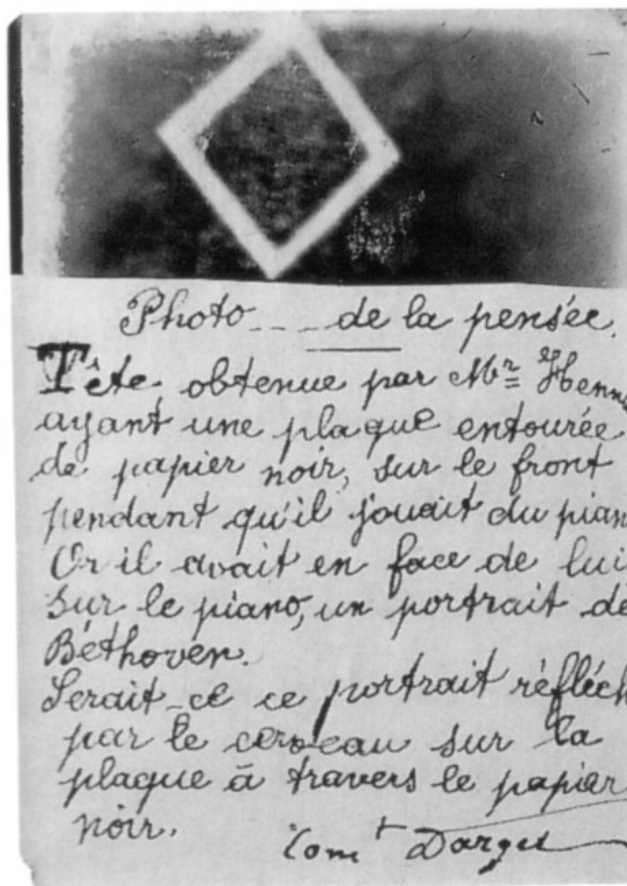 Photo_ _ _ de la pensée.
Tête, obtenue par Mr Henn
ayant une plaque entourée
de papier noir, sur le front
pendant qu'il jouait du pian
Or il avait en face de lui
sur le piano, un portrait de
Béthoven.
Serait-ce ce portrait réfléch
par le cerveau sur la
plaque à travers le papier
noir.
Comt Darget